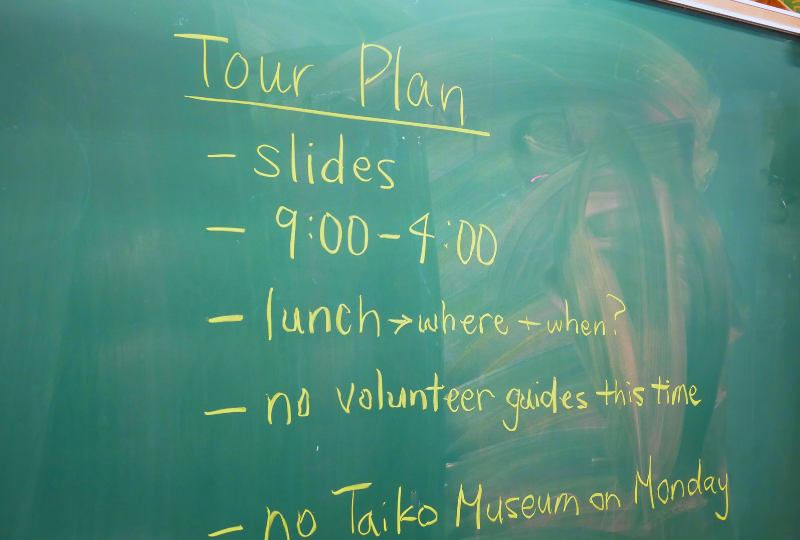 Tour Plan
- slides
- 9:00-4:00
- lunch → where + when?
- no volunteer guides this time
- no Taiko Museum on Monday